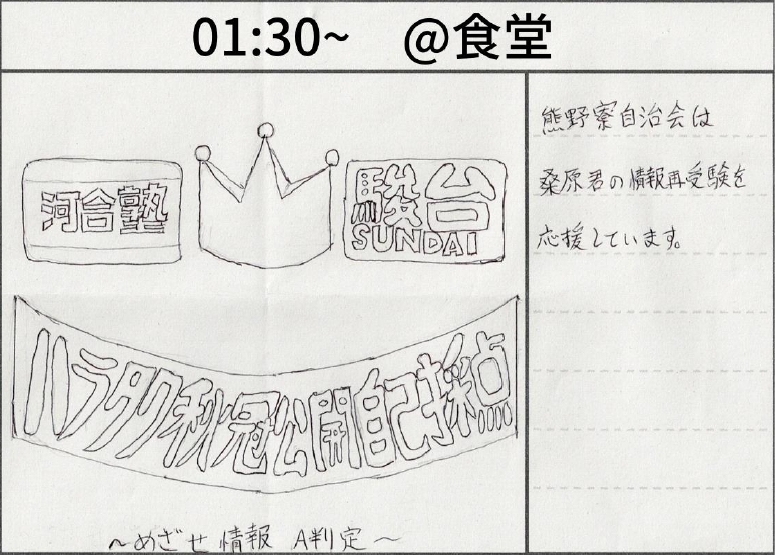 01:30~ @食堂
河合塾
駿台
SUNDAI
ハラタク秋冠公開自己採点
~めざせ 情報 A判定~
熊野寮自治会は
桑原君の情報再受験を
応援しています。